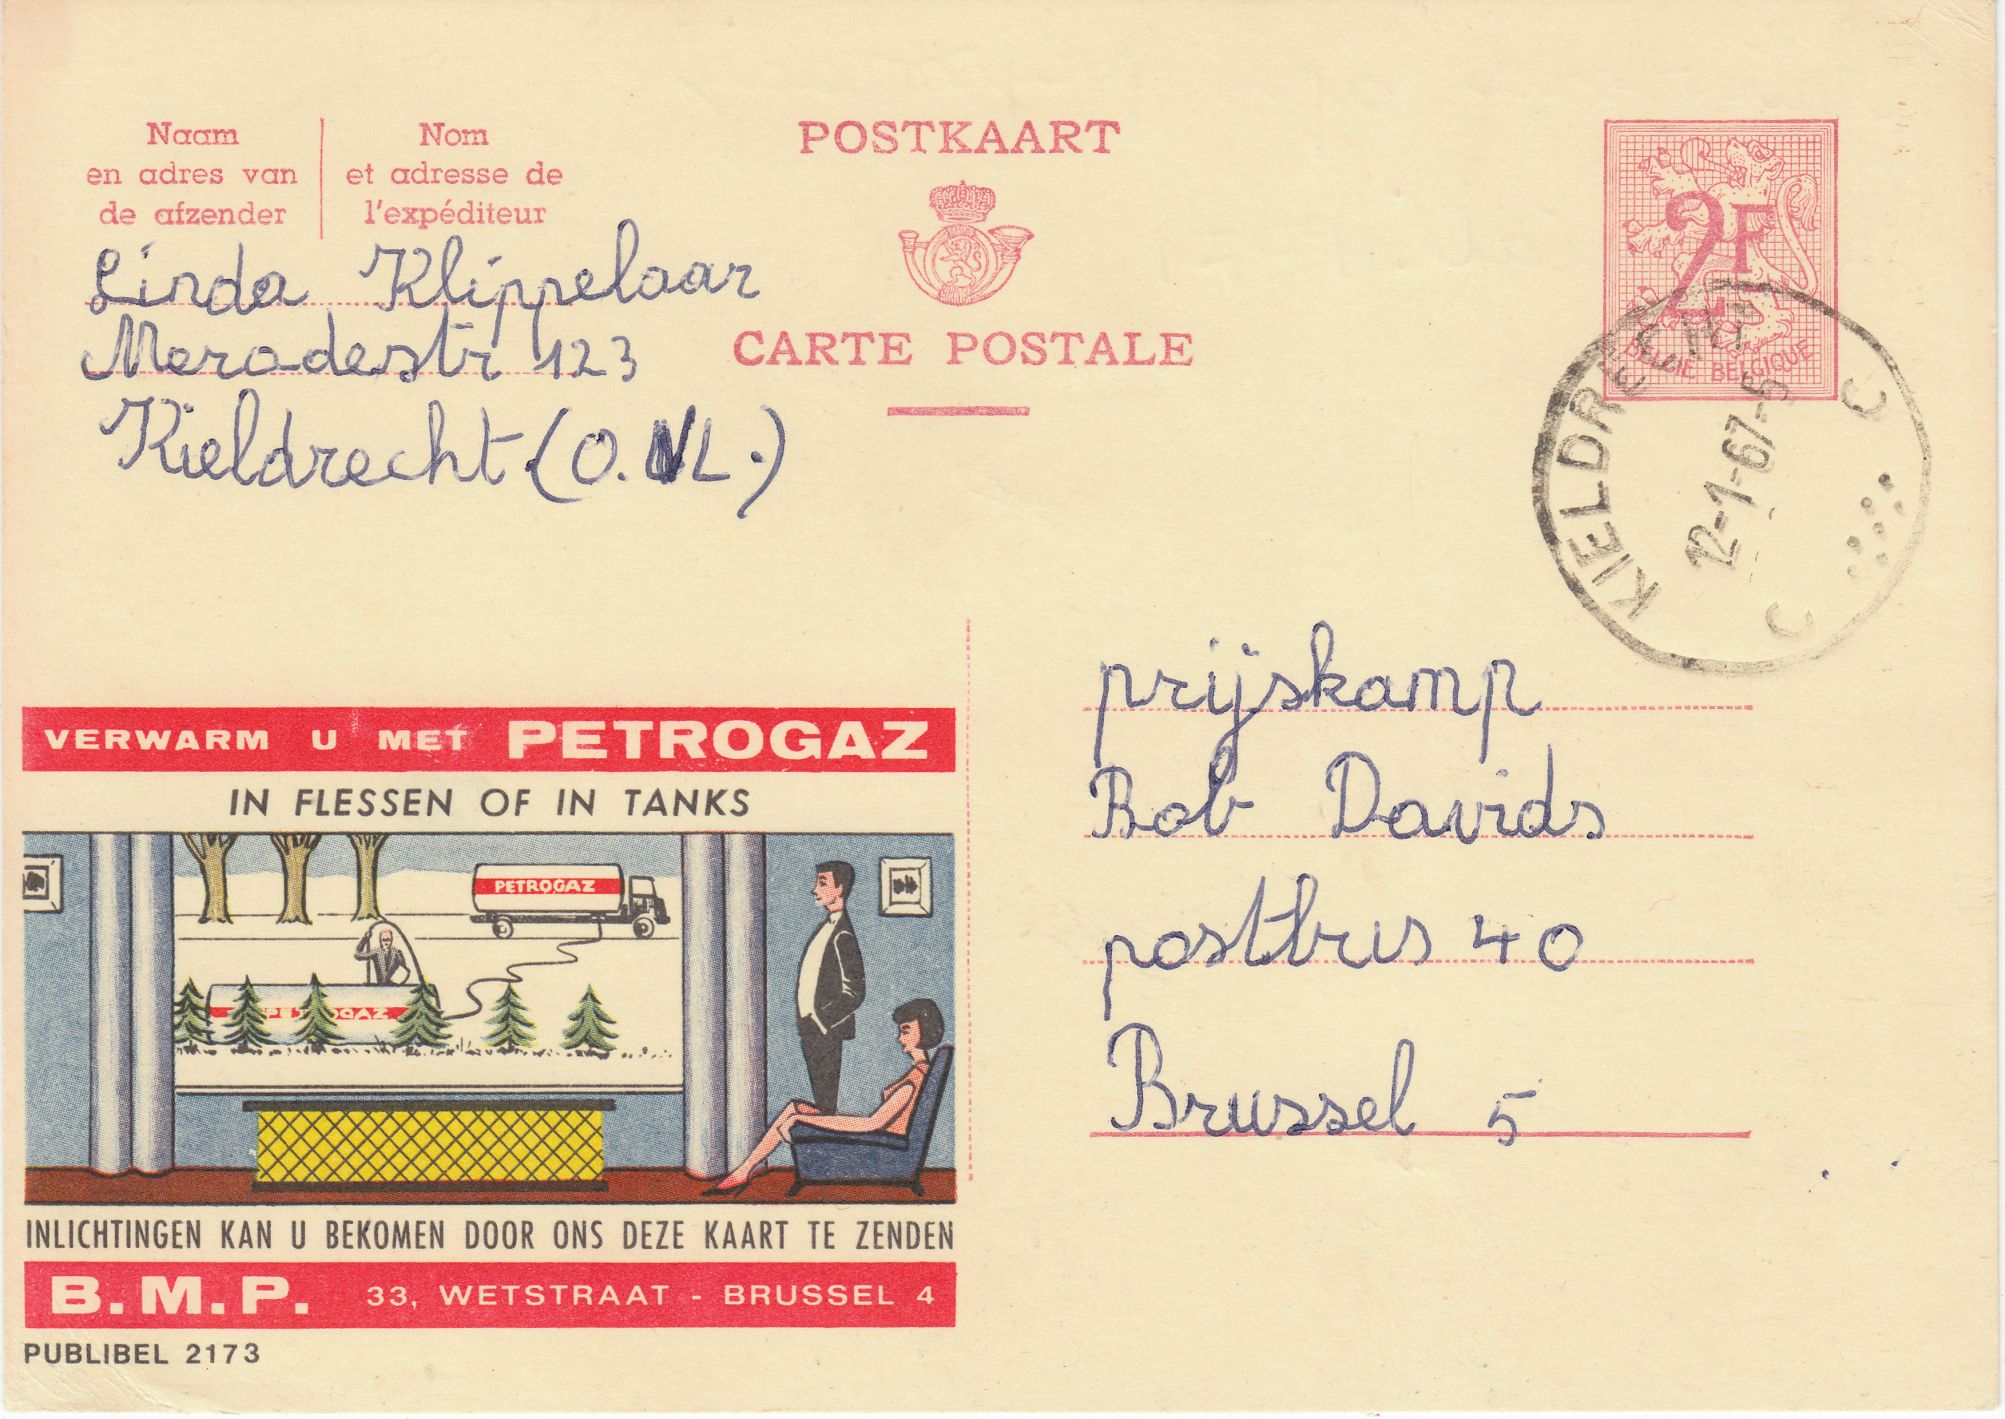 Naam
en adres van
de afzender
Nom
et adresse de
l'expéditeur
POSTKAART
CARTE POSTALE
2F
BELGIE BELGIQUE
KIELDRECHT
12-1-67-5
C C
Linda Klippelaar
Meradestr 123
Kieldrecht (O.VL.)
prijskamp
Bob Davids
postbus 40
Brussel 5
VERWARM U MET PETROGAZ
IN FLESSEN OF IN TANKS
PETROGAZ
PETROGAZ
INLICHTINGEN KAN U BEKOMEN DOOR ONS DEZE KAART TE ZENDEN
B.M.P. 33, WETSTRAAT - BRUSSEL 4
PUBLIBEL 2173